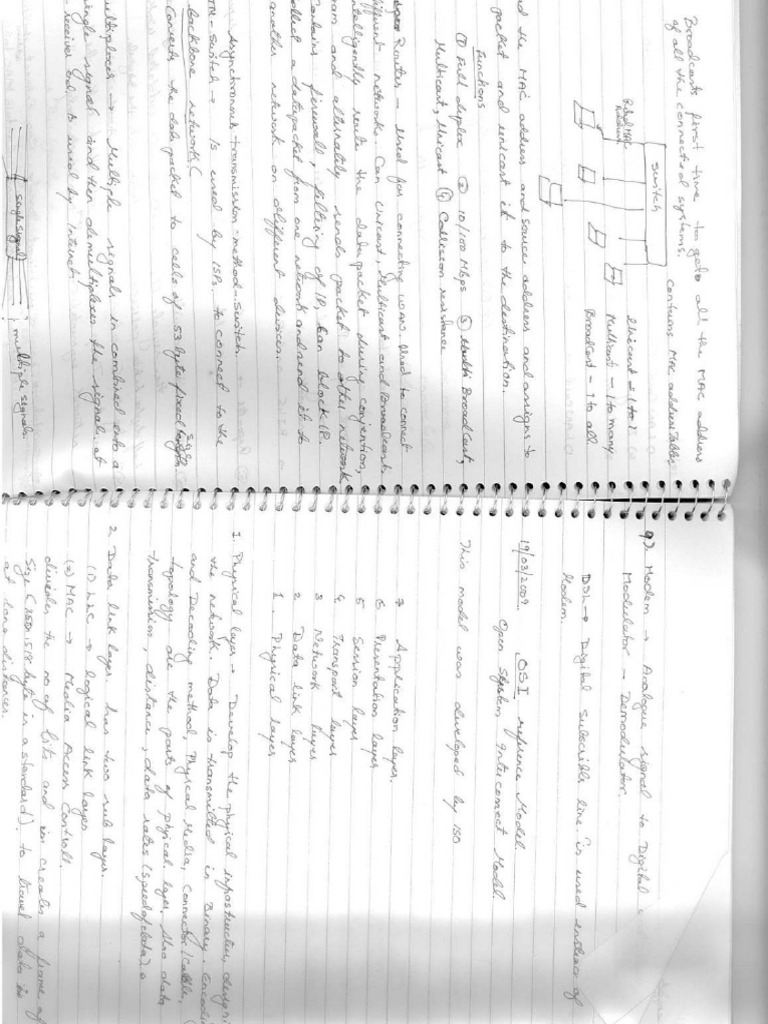 Broadcasts first time to get all the MAC address
of all the connected systems.
contains MAC address Tables
Switch
Unicast - 1 to 1
Multicast - 1 to many
Broadcast - 1 to all
the MAC address and source address and assigns to
packet and unicast it to the destination.
Functions
(1) Full duplex (2) 10/100 Mbps (3) Broadcast,
Multicast, Unicast (4) Collision resistance
Router - Used for connecting WAN. Used to connect
different networks. Can unicast, Multicast and Broadcast.
Intelligently route the data packet during
and alternately sends packet to other network
Contains firewall, filtering of IP, can block IP.
collect a data packet from one network and send it to
another network on different devices.
Asynchronous transmission method switch.
Switch → Is used by ISP, to connect to the
backbone network(
Converts the data packet to cells of 53 byte fixed size
Multiplexer → Multiple signals is combined into a
single signal and then demultiplexes the signal at
receiver end, is used by Internet
single signal
multiple signals.
9). Modem → Analogue signal to Digital
Modulator - Demodulator.
DSL → Digital subscrible line is used instead of
Modem.
19/03/2009 OSI reference Model
Open System Interconnect Model.
This model was developed by ISO
7 Application layer.
6 Presentation layer
5 Session layer
4. Transport layer
3 Network layer
2 Data link layer
1. Physical layer
1. Physical layer → Develop the physical infrastructure,
the network. Data is transmitted in Binary,
and Decoding method, Physical Media, Connector (cable,
topology are the parts of physical layer. Also data
transmission, distance, data rates (speed of data)
2. Data link layer has two sub layer.
(1) LLC → logical link layer
(2) MAC → Media Access Controll.
divides the no. of bits and creates a frame of
size (1518 byte is a standard). to travel data is
at long distances.